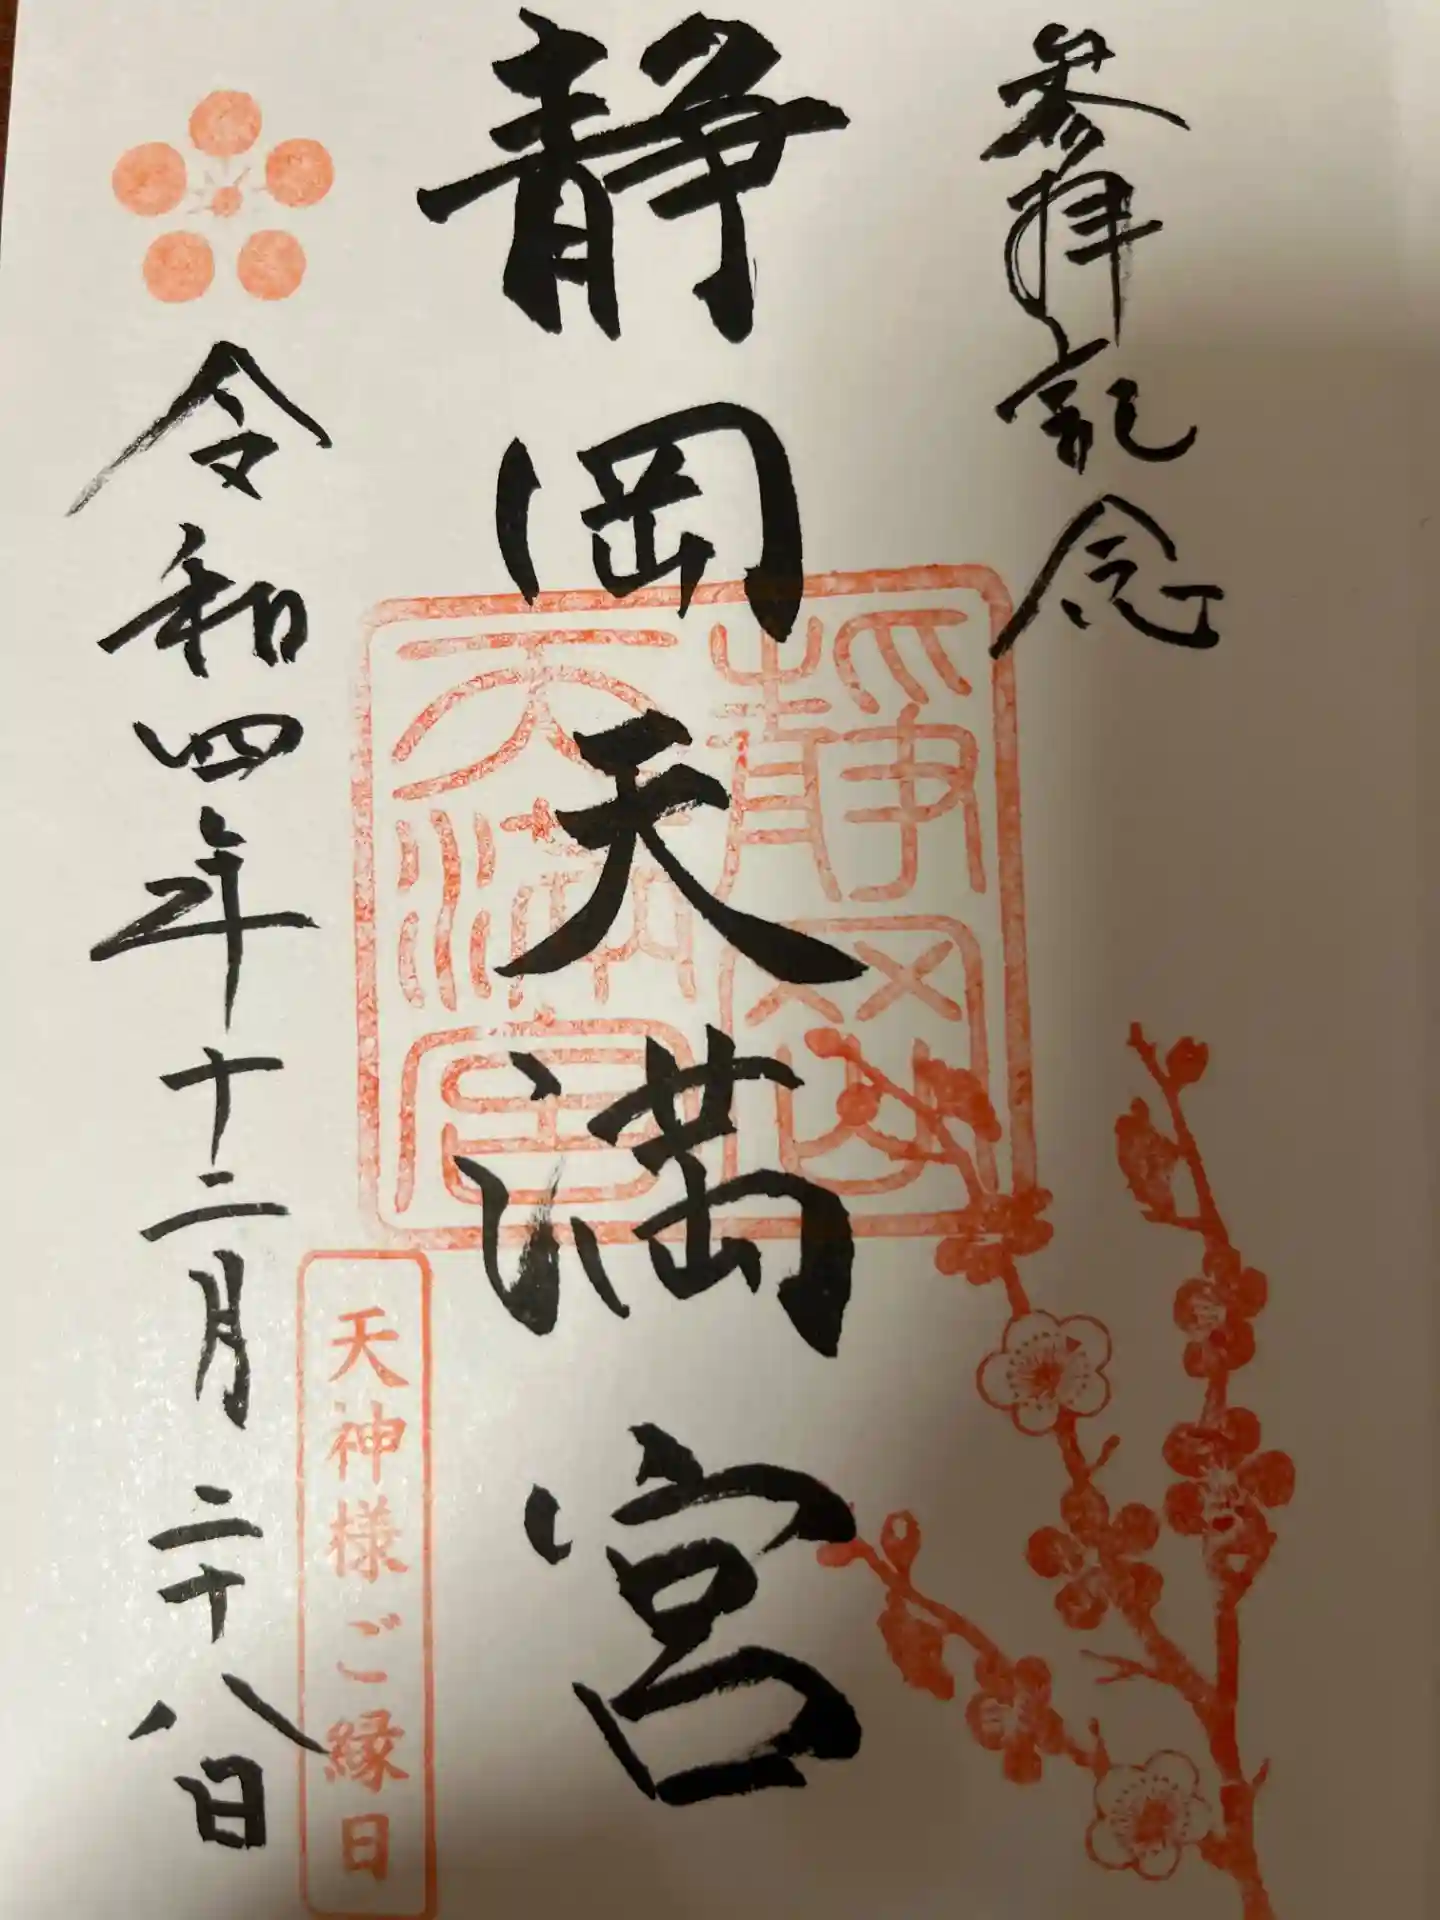 参拝記念
静岡天満宮
静岡天満宮
天神様ご縁日
令和四年十二月二十八日